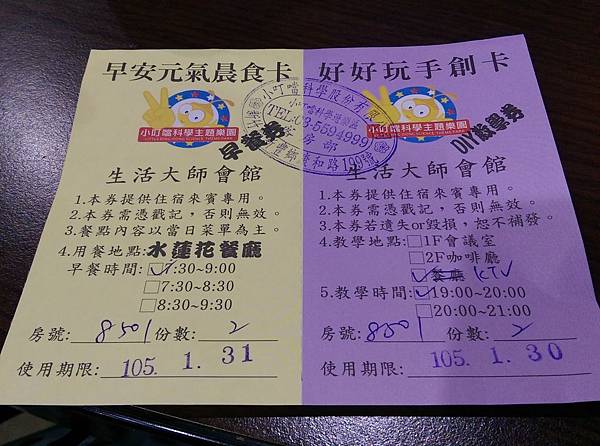 早安元氣晨食卡
小叮噹科學主題樂園
早餐券
生活大師會館
1.本券提供住宿來賓專用。
2.本券需憑戳記，否則無效。
3.餐點內容以當日菜單為主。
4.用餐地點:水蓮花餐廳
早餐時間:☑7:30~9:00
□7:30~8:30
□8:30~9:30
房號:8501份數:2
使用期限:105. 1. 31
小叮噹科學股份有限
小叮噹科學遊樂區
TEL:03-5594999
房部
199號
好好玩手創卡
小叮噹科學主題樂園
DIY教學券
生活大師會館
1.本券提供住宿來賓專用。
2.本券需憑戳記，否則無效。
3.本券若遺失or毀損，恕不補發。
4.教學地點:□1F會議室
□2F咖啡廳
☑餐廳 KTV
5.教學時間:☑19:00~20:00
□20:00~21:00
房號:8501份數:2
使用期限:105. 1. 30